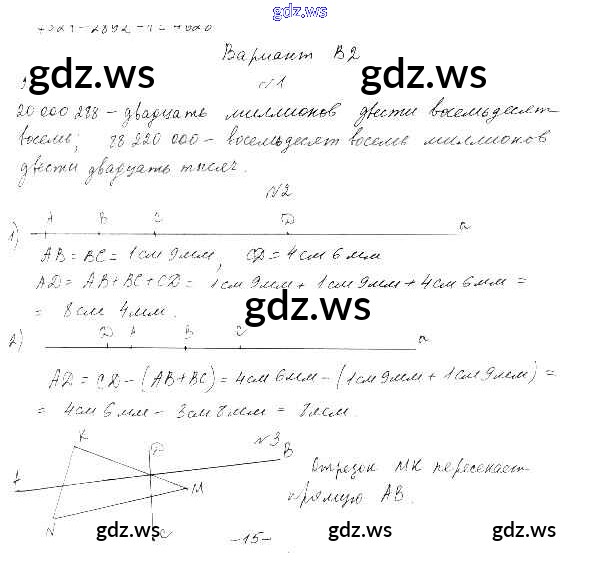 gdz.ws
7321-2892-
Вариант В2
gdz.ws gdz.ws
№1
20 000 288 - двадцать миллионов двести восемьдесят
восемь; 88 220 000 - восемьдесят восемь миллионов
двести двадцать тысяч.
№2
1) A B C D a
AB = BC = 1см 9мм, CD = 4см 6мм
AD = AB + BC + CD = 1см 9мм + 1см 9мм + 4см 6мм =
= 8см 4мм.
gdz.ws
2) D A B C a
AD = CD - (AB + BC) = 4см 6мм - (1см 9мм + 1см 9мм) =
= 4см 6мм - 3см 8мм = 8мм.
№3
K B
A Отрезок MK пересекает
M прямую AB.
N C
gdz.ws gdz.ws
-15-